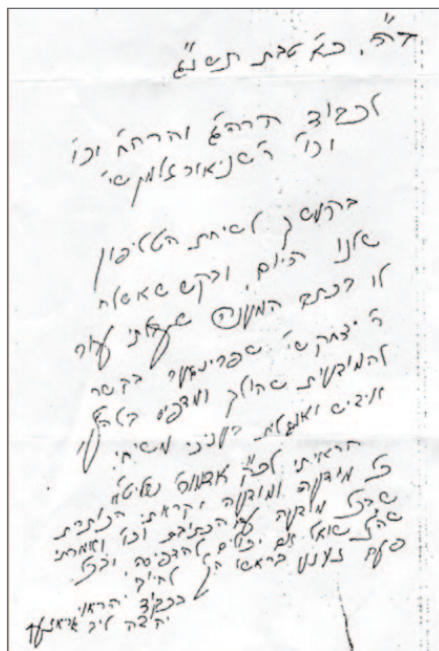 ב"ה, כ"א טבת תשנ"ג
לכבוד הרה"ג והרה"ח וכו'
וכו' ר' שניאור זלמן שי'
בהמשך לשיחת הטליפון
שלנו היום, ובקש שאשלח
לו בכתב המענה שקבלתי עבור
ר' יצחק שי' שפרינגער בקשר
להמודעות שהולך ומדפיס
אידיש ואנגלית בעניני משיח:
הראיתי לכ"ק אדמו"ר שליט"א
כל מודעה ומודעה, קראתי הכותרת
שבכל מודעה וכו' ואמרתי
שהנ"ל שואל אם יכולים להדפיסה ובכל
פעם נענע בראשו הק' לחיוב
בכבוד הראוי
יהודה ליב גראנער